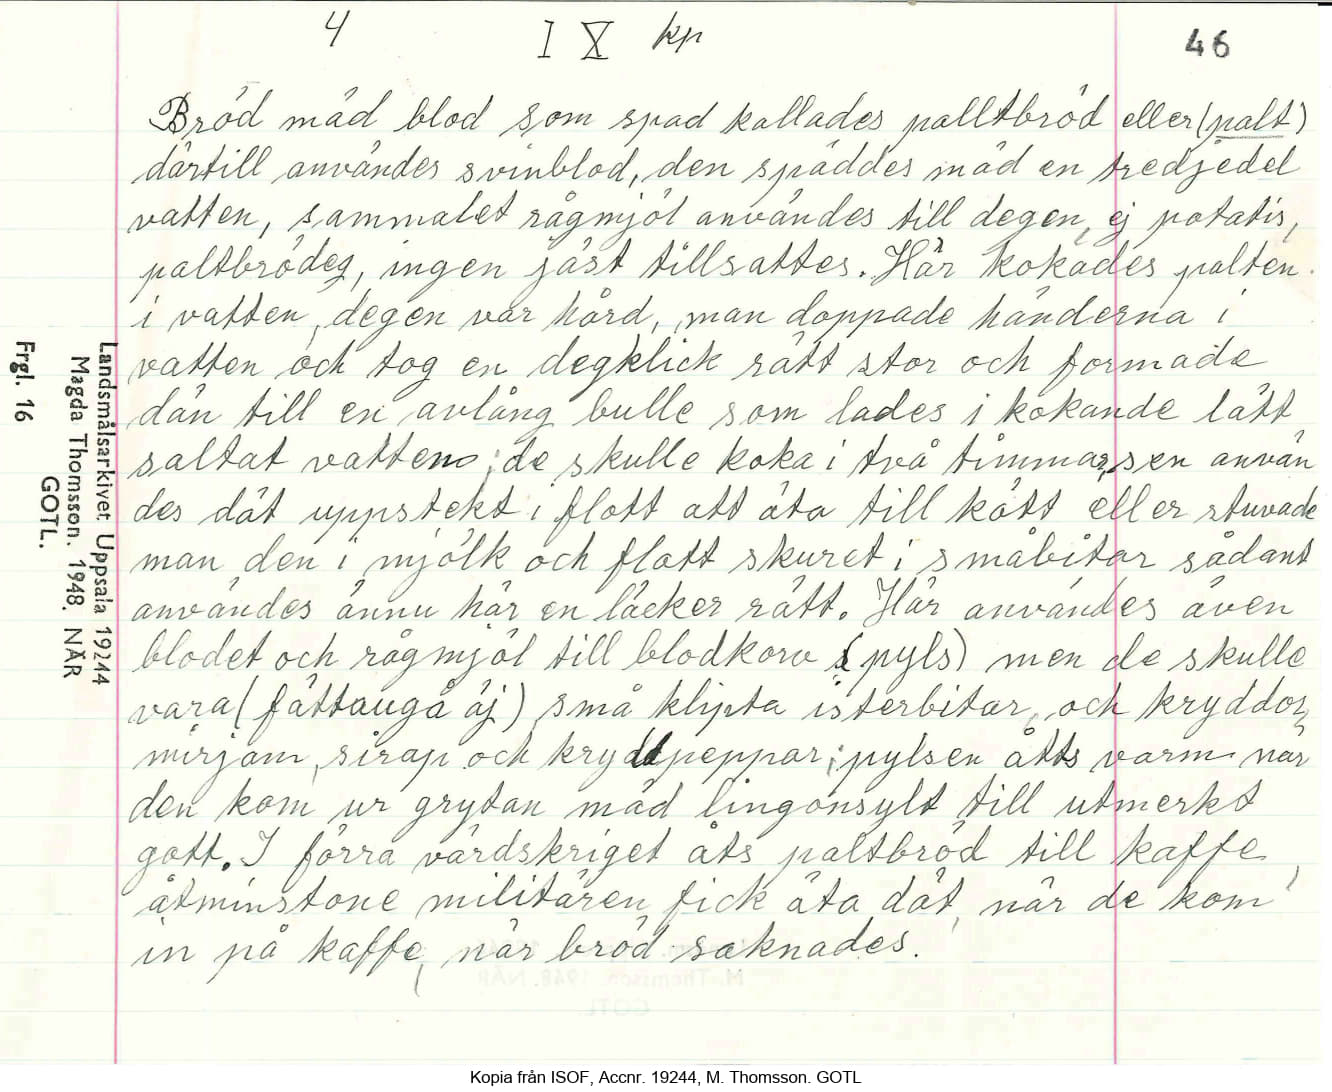 4 I X kp 46
Bröd mäd blod som spad kallades palltbröd eller (palt)
därtill användes svinblod, den späddes mäd en tredjedel
vatten, sammalet rågmjöl användes till degen, ej potatis,
paltbrödeg, ingen jäst tillsattes. Här kokades palten
i vatten, degen var hård, man doppade händerna i
vatten och tog en degklick rätt stor och formade
dän till en avlång bulle som lades i kokande lätt
saltat vatten; de skulle koka i två timmar, sen använ
des dät uppstekt i flott att äta till kött eller stuvade
man den i mjölk och flott skuret i småbitar sådant
användes ännu här en läcker rätt. Här användes även
blodet och rågmjöl till blodkorv (pyls) men de skulle
vara (fättaugå äj) små klipta isterbitar, och kryddor,
mirjam, sirap och kryddpeppar; pylsen åtts varm när
den kom ur grytan mäd lingonsylt till utmerkt
gott. I förra värdskriget åts paltbröd till kaffe,
åtminstone militären fick äta dät, när de kom
in på kaffe, när bröd saknades.
Landsmålsarkivet, Uppsala 19244
Magda Thomsson. 1948. NÄR
GOTL.
Frgl. 16
M. Thomsson. 1948. NÄR
GOTL
Kopia från ISOF, Accnr. 19244, M. Thomsson. GOTL